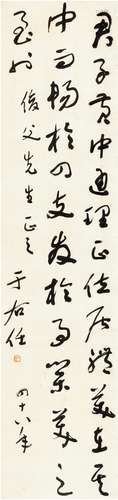 君子黄中通理正位居體美在其
中而暢於四支發於事業美之
至也
俊父先生正之
于右任
四十八年